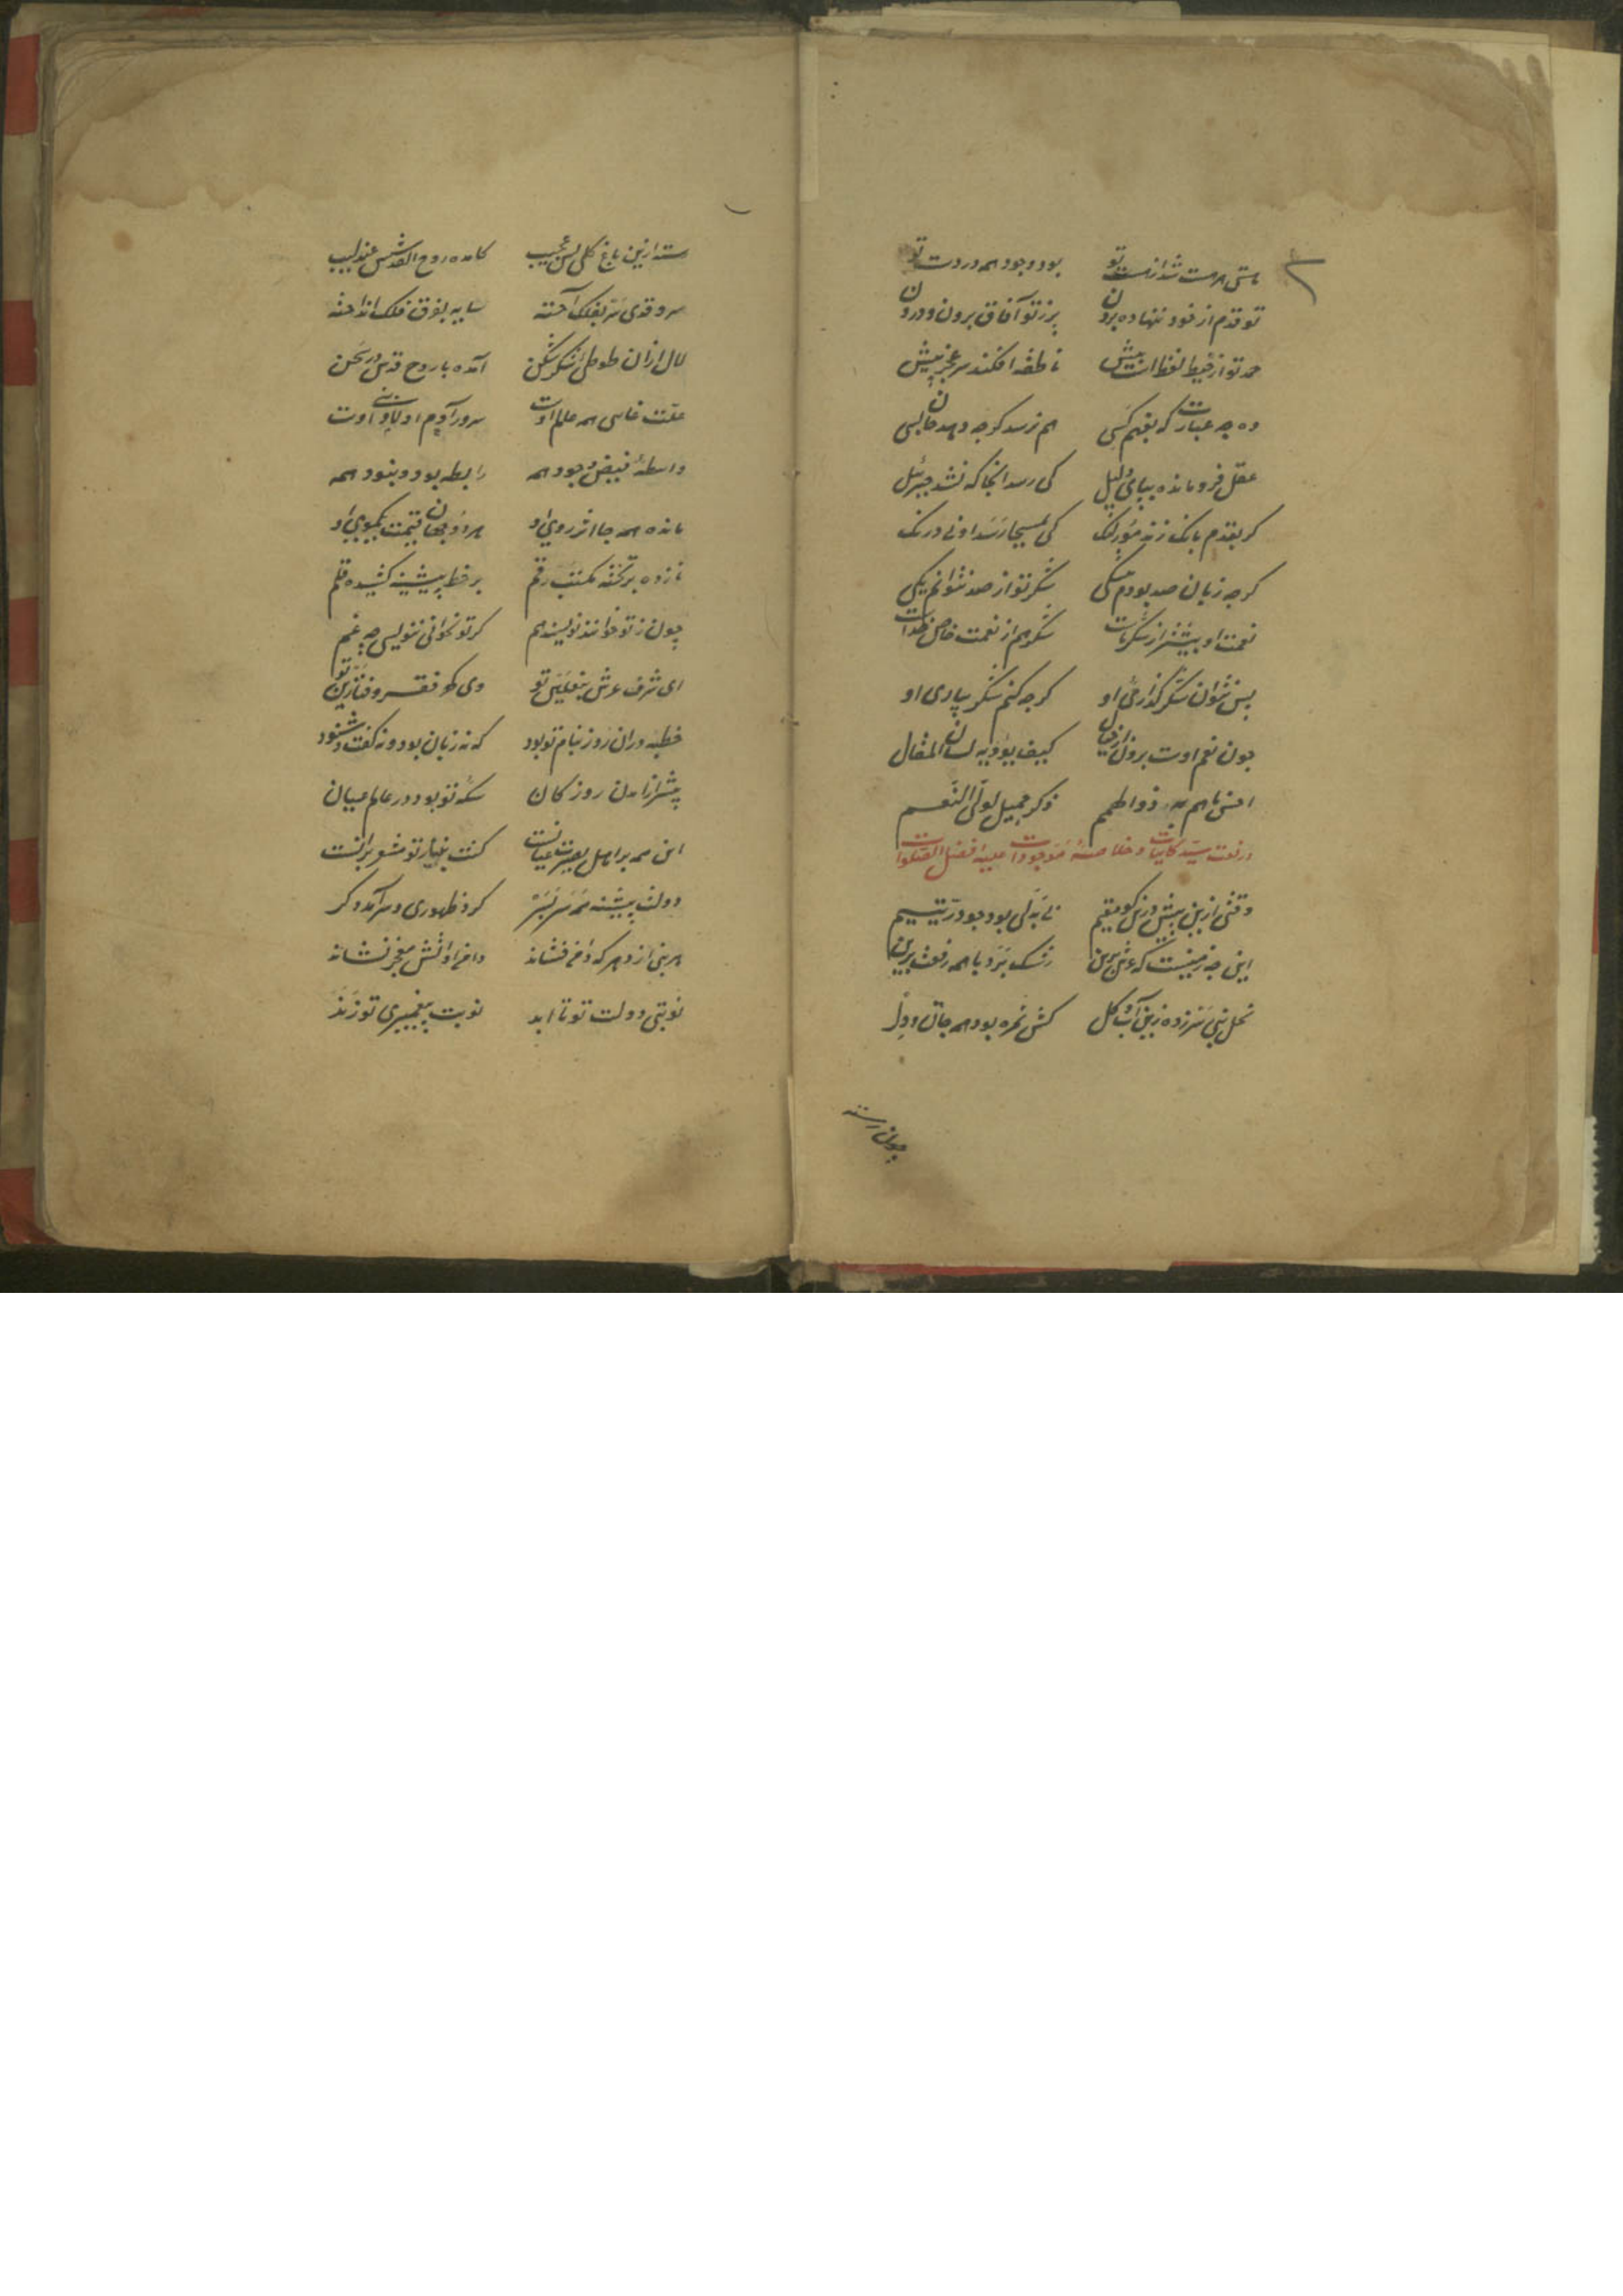 هستی هر هست شد از هست تو بود وجود همه در دست تو
تو قدم از خود ننهاده برون پر ز تو آفاق برون و درون
حمد تو از حیطه الفاظ بیش ناطقه افکند سر عجز پیش
وه چه عبارت که بفهم کسی هم نرسد کرچه دهد جان بسی
عقل فرومانده بپای دلیل کی رسد انجا که نشد جبرئیل
کر بقدم بانک زند مور لنک کی بمسیحا رسد او بی درنک
کرچه زبان صد بودم متکی شکر تو از صد نتوانم یکی
نعمت او بیشتر از شکر ماست شکر هم از نعمت خاص خداست
پس نتوان شکر کذاری او کرچه کنم شکر بیاری او
چون نعم اوست برون از خیال کیف یؤدیه لسان المقال
ذکر جمیل لولی النعم
در نعت سید کاینات و خلاصه موجودات علیه افضل الصلوات
وقتی ازین پیش درین کو مقیم نخلی بود چو در یتیم
این چه زمینیست که عرش برین رشک برد با همه رفعت برین
نخل نبی سر زده زین آب و کل کش ثمره بود همه جان و دل
چون رسته
رسته ازین باغ کلی بس عجیب کامده روح القدسش عندلیب
سرو قدی سر بفلک آخته سایه بفوق فلک انداخته
لال ازان طوطی شکرشکن آمده با روح قدس در سخن
علت غایی همه عالم اوست سرور آدم اوست
واسطه فیض وجود همه رابطه بود و نبود همه
مانده همه جا اثر روی او هر دو جهان قیمت یکموی او
نازده بر تخته مکتب رقم بر خط پیشینه کشیده قلم
چون ز تو خوانند نویسند هم کر تو نخوانی ننویسی چه غم
ای شرف عرش ز نعلین تو وی فقر و فنا زین تو
خطبه دران روز بنام تو بود که نه زبان بود و نه کفت و شنود
پیشتر از آمدن روز کان سکه تو بود در عالم عیان
این همه بر اهل بصیرت عیانست کنت نبیا ز تو منشور آنست
دولت پیشینه همه سر بسر کرد ظهوری و سر آمد دکر
هر نبی از دهر که دامن فشاند دامن او آتش معجز نشاند
نوبتی دولت تو تا ابد نوبت پیغمبری تو زند